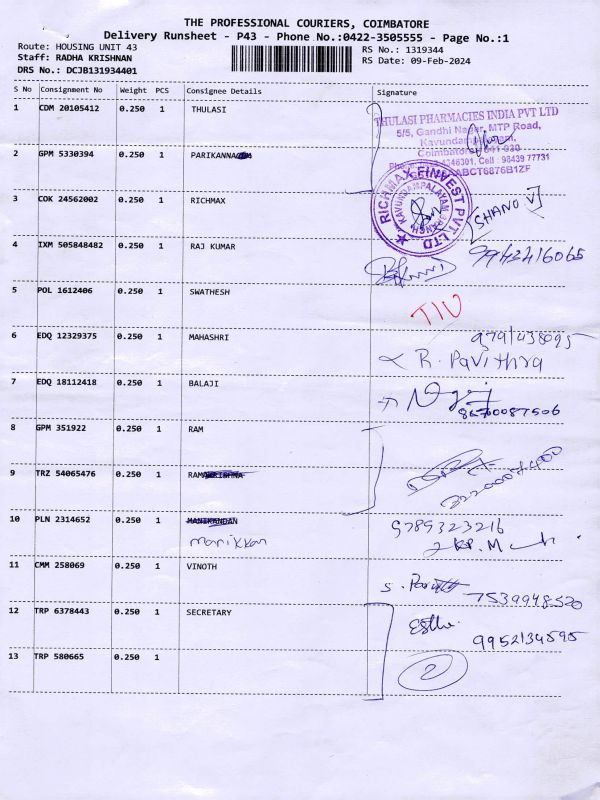 THE PROFESSIONAL COURIERS, COIMBATORE
Delivery Runsheet - P43 - Phone No.:0422-3505555 - Page No.:1
Route: HOUSING UNIT 43 RS No.: 1319344
Staff: RADHA KRISHNAN RS Date: 09-Feb-2024
DRS No.: DCJB131934401
S No Consignment No Weight PCS Consignee Details Signature
1 CDM 20105412 0.250 1 THULASI
THULASI PHARMACIES INDIA PVT LTD
5/5, Gandhi Nagar, MTP Road,
Coimbatore
Cell : 98439 77731
2 GPM 5330394 0.250 1 PARIKANNA
3 COK 24562002 0.250 1 RICHMAX
RICHMAX FINVEST PVT. LTD
KAVUNDAMPALAYAM BRANCH
(SHANO V)
4 IXM 505848482 0.250 1 RAJ KUMAR
9942416065
5 POL 1612406 0.250 1 SWATHESH
6 EDQ 12329375 0.250 1 MAHASHRI
R. Pavithra
7 EDQ 18112418 0.250 1 BALAJI
8 GPM 351922 0.250 1 RAM
9 TRZ 54065476 0.250 1 RAMAKRISHNA
10 PLN 2314652 0.250 1 MANIKANDAN
manikkan
9789323216
11 CMM 258069 0.250 1 VINOTH
7539948520
12 TRP 6378443 0.250 1 SECRETARY
9952134595
13 TRP 580665 0.250 1
2